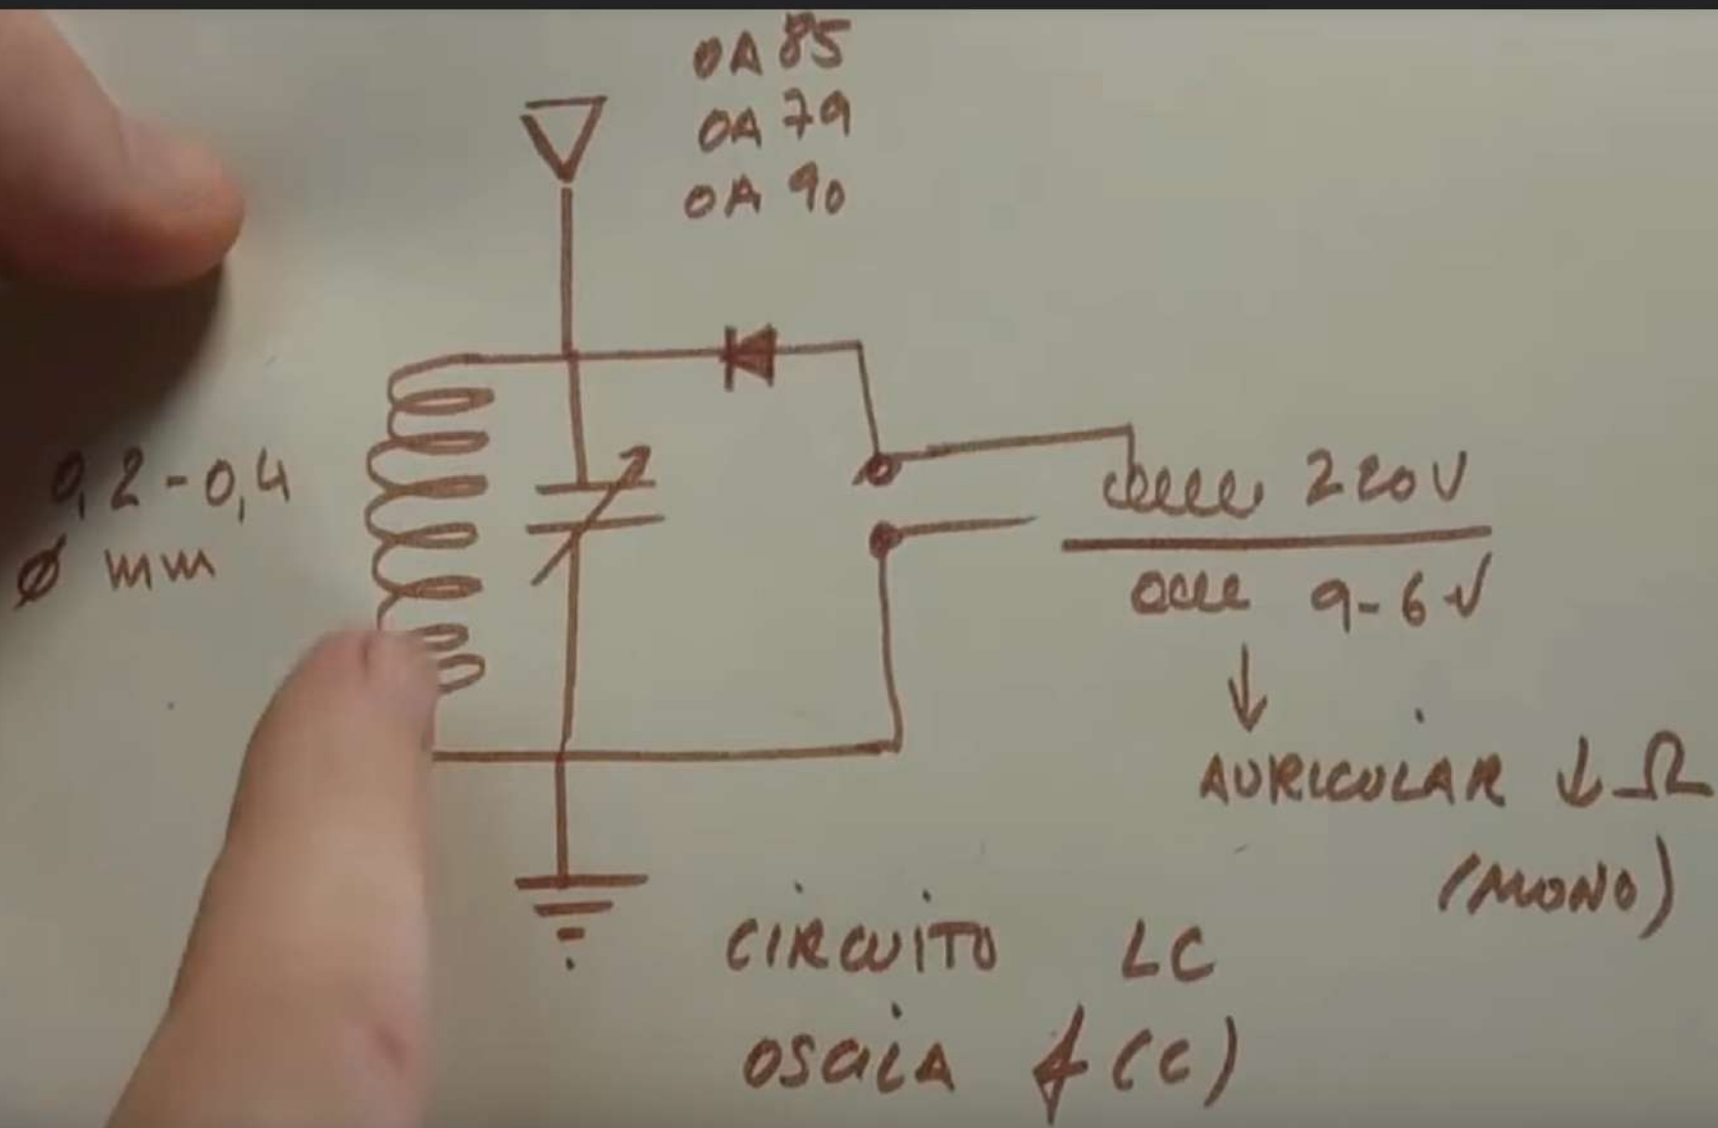 OA 85
OA 79
OA 90
0,2-0,4
Ø mm
220V
9-6V
↓
AURICULAR ↓ Ω
(MONO)
CIRCUITO LC
OSCILA f(C)